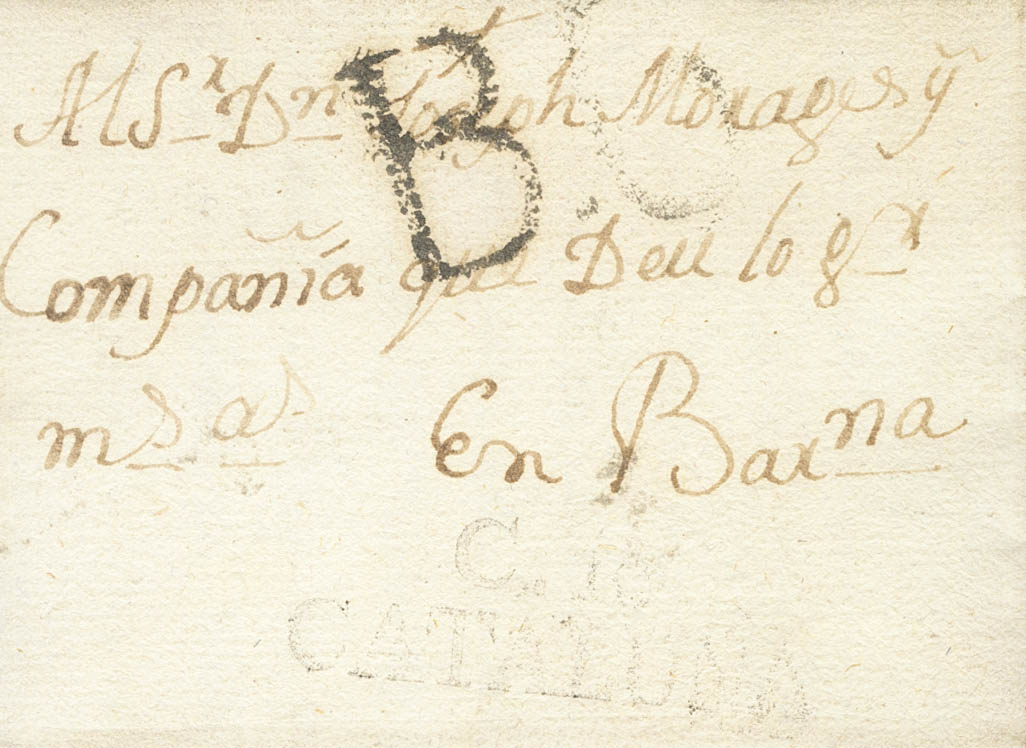 Al Sr Dn Joseph Morages y
Compañia que Deu lo gr
ms as En Barna
B
C. R
CATALUÑA